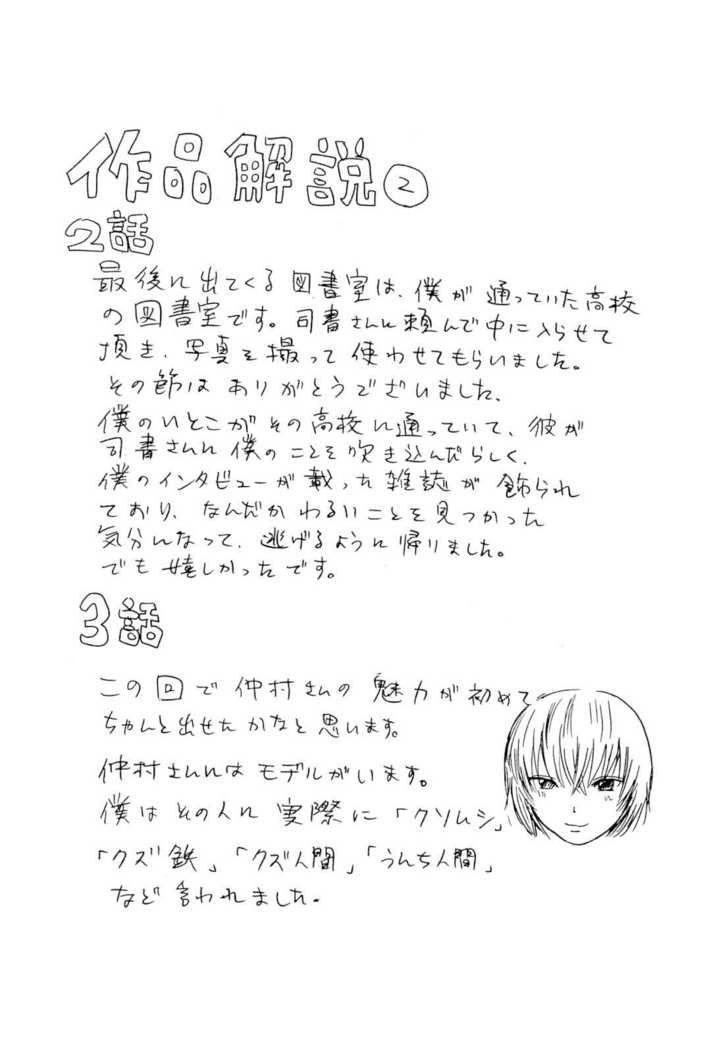 作品解説②
2話
最後に出てくる図書室は、僕が通っていた高校
の図書室です。司書さんに頼んで中に入らせて
頂き、写真を撮って使わせてもらいました。
その節はありがとうございました、
僕のいとこがその高校に通っていて、彼が
司書さんに僕のことを吹き込んだらしく、
僕のインタビューが載った雑誌が飾られ
ており、なんだかわるいことを見つかった
気分になって、逃げるように帰りました。
でも嬉しかったです。
3話
この回で仲村さんの魅力が初めて
ちゃんと出せたかなと思います。
仲村さんにはモデルがいます。
僕はその人に実際に「クソムシ」
「クズ鉄」「クズ人間」「うんち人間」
など言われました。